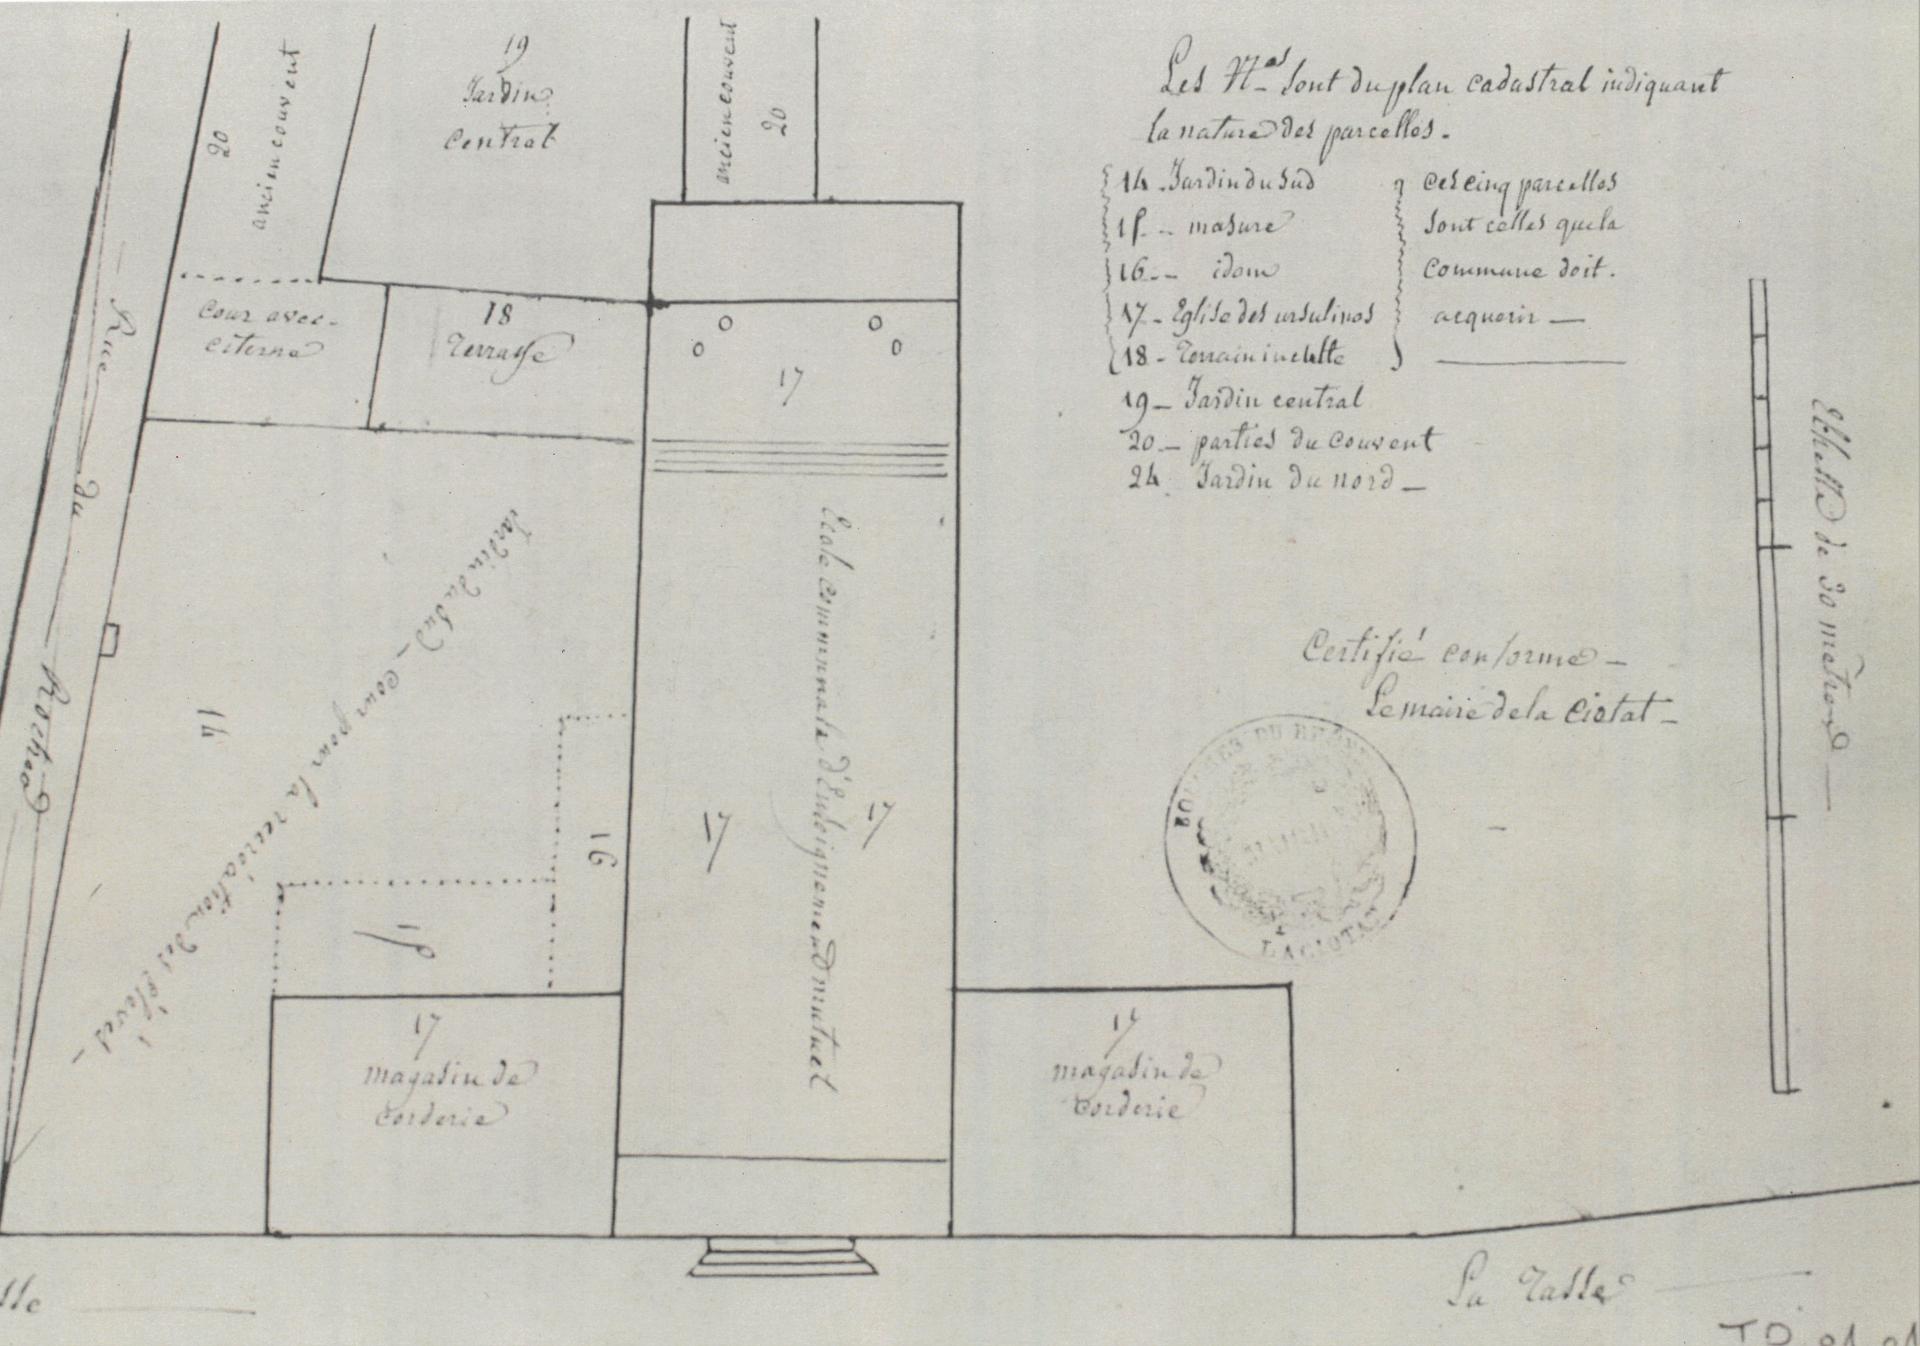 Les Nos sont du plan cadastral indiquant
la nature des parcelles.
14 - Jardin du sud
15 - - masure
16 - - idem
17 - Eglise des ursulines
18 - Terrain inculte
ces cinq parcelles
sont celles que la
commune doit
acquerir —
19 - Jardin central
20 - parties du couvent
24 Jardin du nord -
20
ancien couvent
19
Jardin
central
ancien couvent
20
cour avec
citerne
18
Terrasse
17
Rue du Rocher
14
Jardin du sud - cour pour la récréation des élèves -
15
16
17
17
Ecole communale d'Enseignement mutuel
17
magasin de
corderie
17
magasin de
corderie
Certifié conforme -
Le maire de la Ciotat -
BOUCHES DU RHÔNE
LA CIOTAT
Echelle de 30 mètres
sse
La Tasse